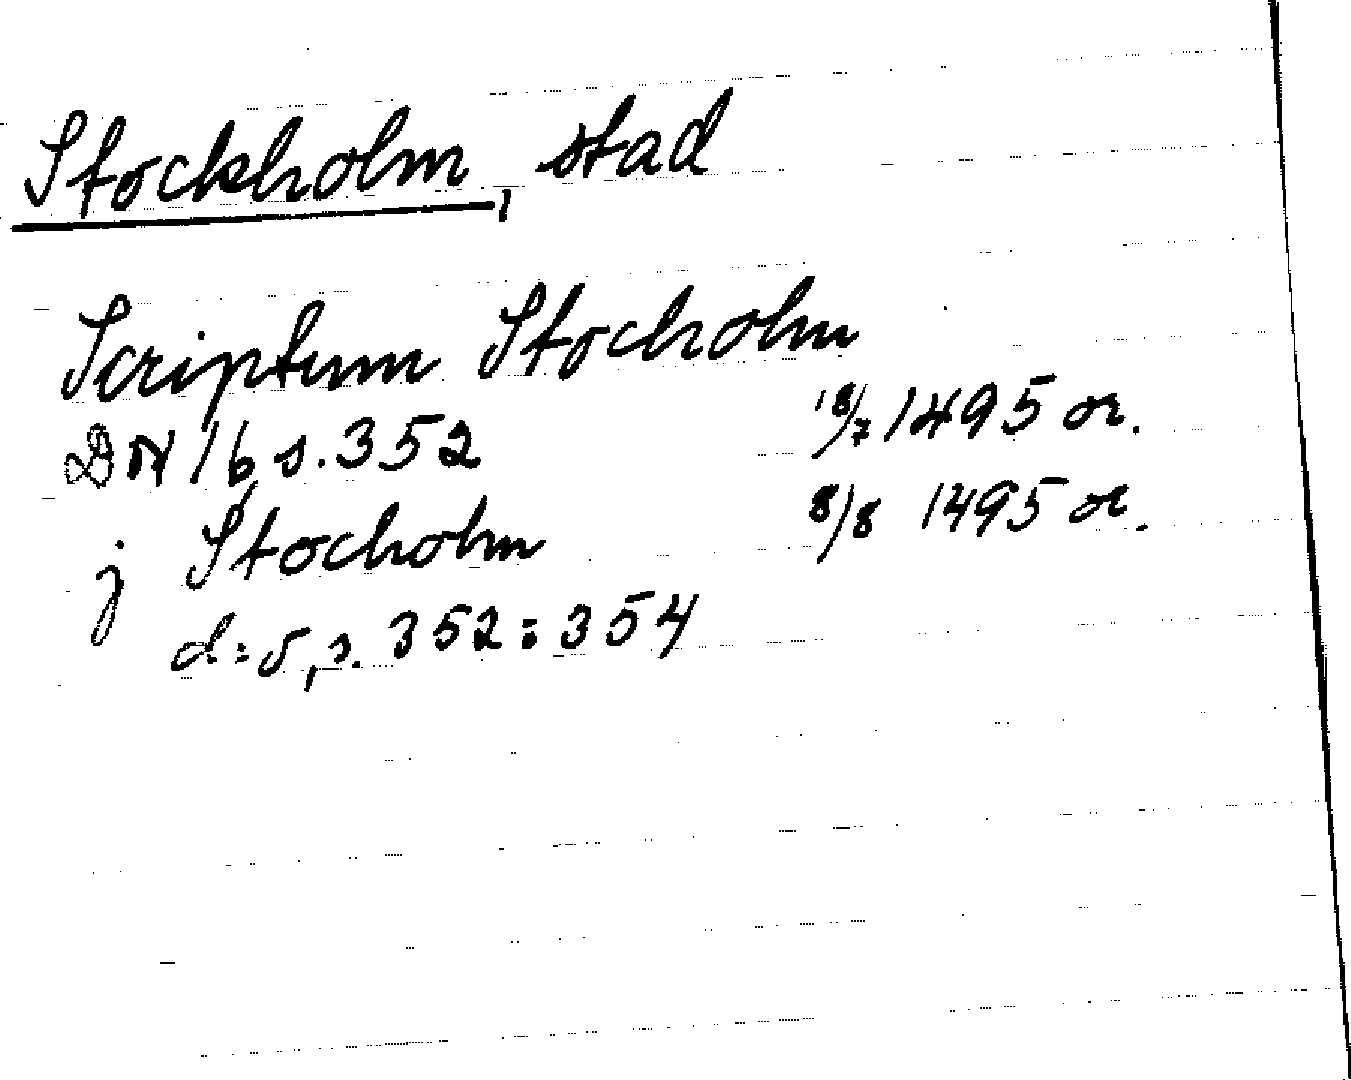 Stockholm, stad
Scriptum Stocholm
18/7 1495 or.
DN 16 s. 352
j Stocholm
8/8 1495 or.
d:o, s. 352 : 354